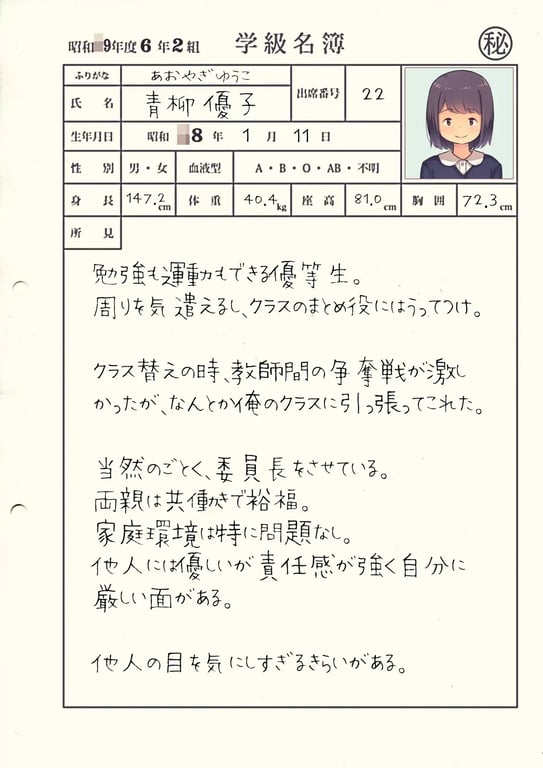 昭和 9年度6年2組 学級名簿 ㊙
ふりがな あおやぎゆうこ
氏名 青柳優子 出席番号 22
生年月日 昭和 8年 1月 11日
性別 男・女 血液型 A・B・O・AB・不明
身長 147.2cm 体重 40.4kg 座高 81.0cm 胸囲 72.3cm
所見
勉強も運動もできる優等生。
周りを気遣えるし、クラスのまとめ役にはうってつけ。
クラス替えの時、教師間の争奪戦が激し
かったが、なんとか俺のクラスに引っ張ってこれた。
当然のごとく、委員長をさせている。
両親は共働きで裕福。
家庭環境は特に問題なし。
他人には優しいが責任感が強く自分に
厳しい面がある。
他人の目を気にしすぎるきらいがある。